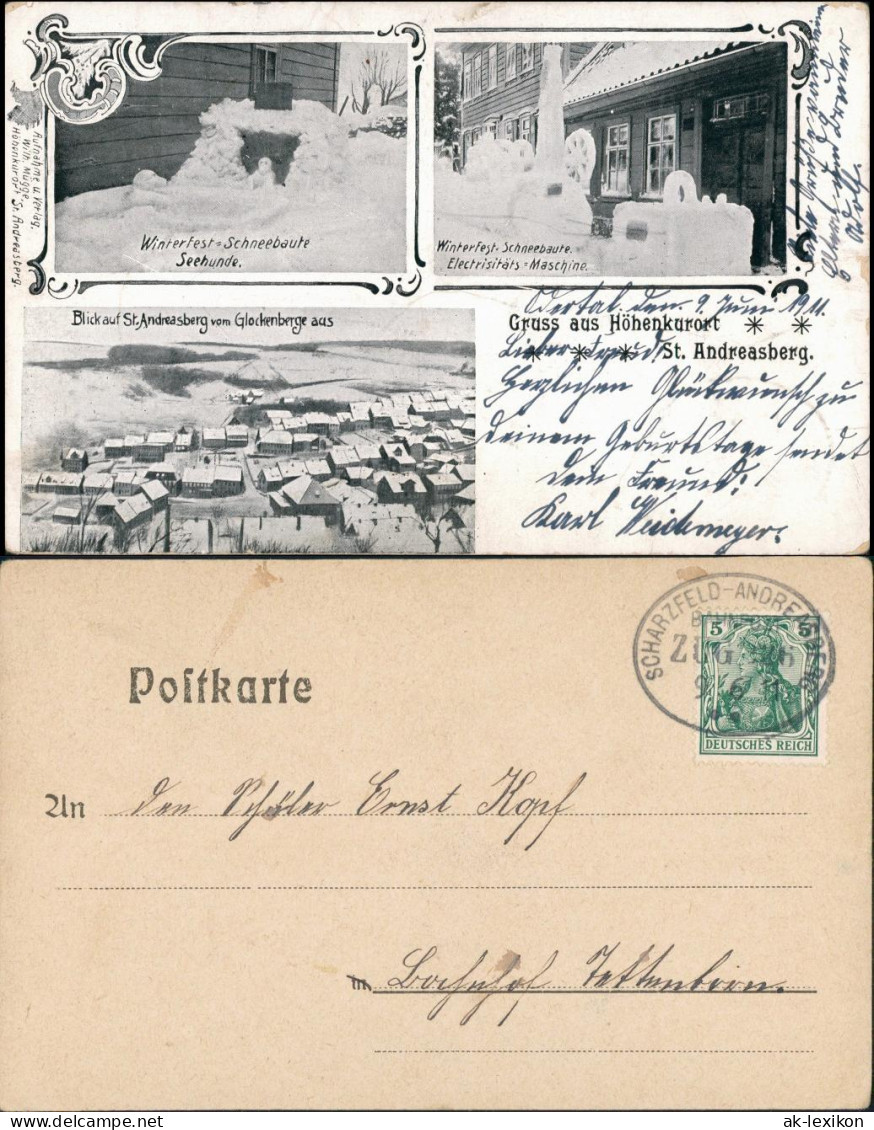 Aufnahme u. Verlag.
Wilh. Mügge,
Höhenkurort St. Andreasberg.
Winterfest=Schneebaute
Seehunde.
Winterfest-Schneebaute.
Electrisitäts=Maschine.
Blick auf St. Andreasberg vom Glockenberge aus
Gruss aus Höhenkurort
St. Andreasberg.
Odertal, den 9. Juni 1911.
Lieber Freund!
Herzlichen Glückwunsch zu
deinem Geburtstage sendet
dein Freund:
Karl Weidemeyer.
und Bruder
Adolf.
SCHARZFELD-ANDREASBERG
BAHNPOST
ZUG
9 6 11
5 5
DEUTSCHES REICH
Postkarte
An den Schüler Ernst Kopf
in Bahnhof Tettenborn.
ak-lexikon